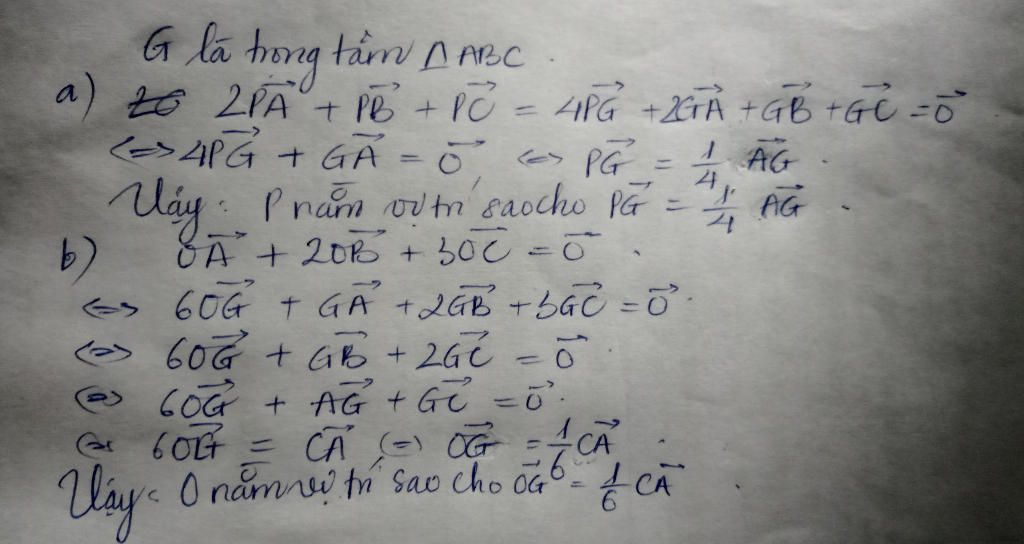 G là trọng tâm △ABC.
a) 2PA⃗ + PB⃗ + PC⃗ = 4PG⃗ + 2GA⃗ + GB⃗ + GC⃗ = 0⃗
<=> 4PG⃗ + GA⃗ = 0⃗, <=> PG⃗ = 1/4 AG⃗.
Vậy: P nằm ở vị trí sao cho PG⃗ = 1/4 AG⃗.
b) OA⃗ + 2OB⃗ + 3OC⃗ = 0⃗.
<=> 6OG⃗ + GA⃗ + 2GB⃗ + 3GC⃗ = 0⃗.
<=> 6OG⃗ + GB⃗ + 2GC⃗ = 0⃗
<=> 6OG⃗ + AG⃗ + GC⃗ = 0⃗.
<=> 6OG⃗ = CA⃗ <=> OG⃗ = 1/6 CA⃗.
Vậy: O nằm vị trí sao cho OG⃗ = 1/6 CA⃗.